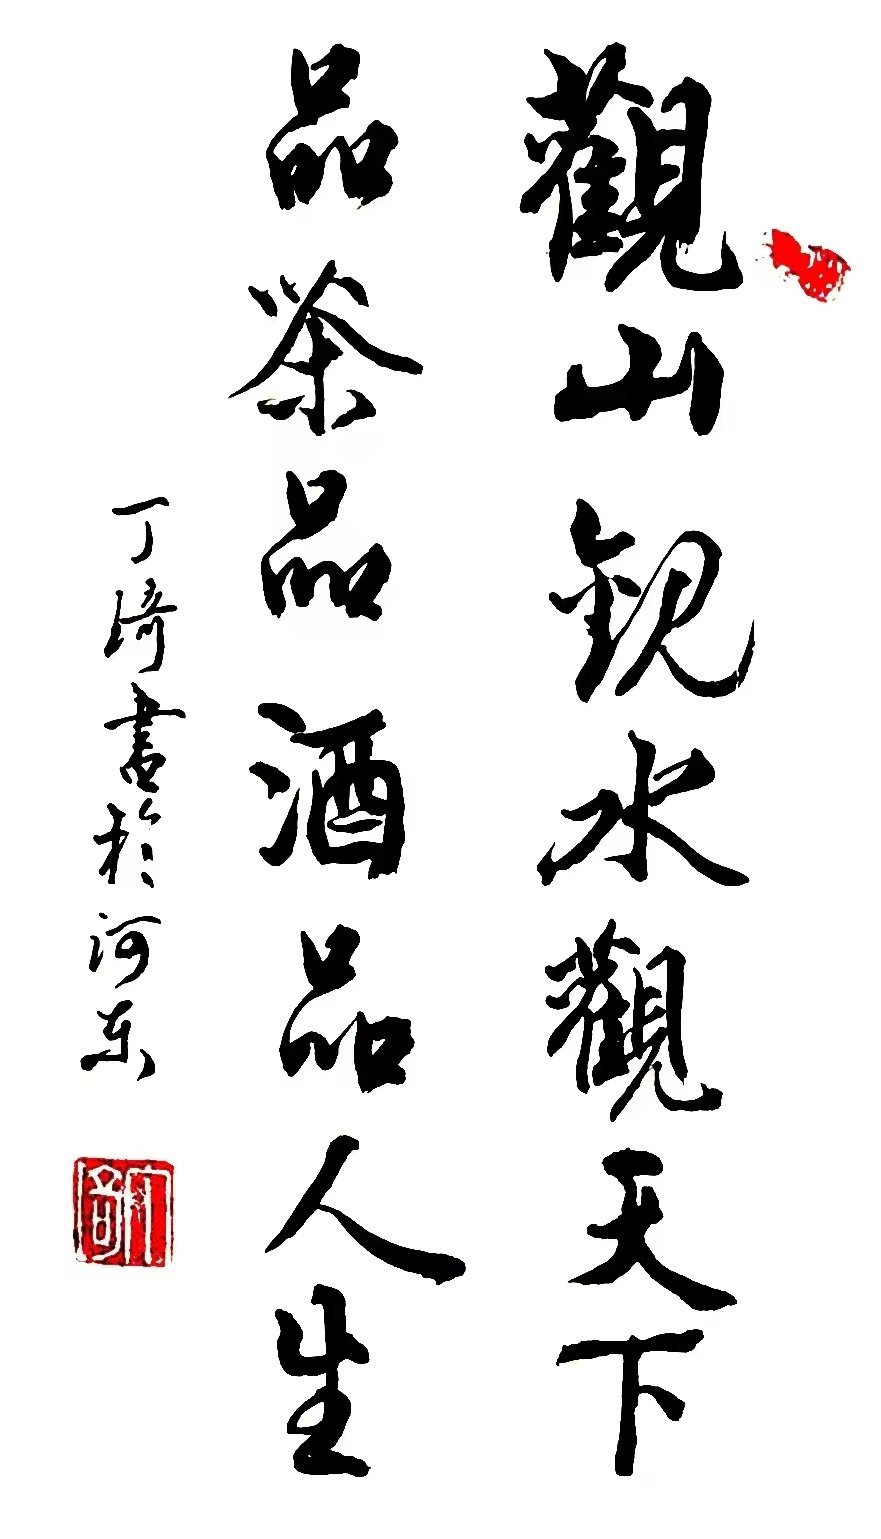 觀山觀水觀天下
品茶品酒品人生
丁琦書於河东